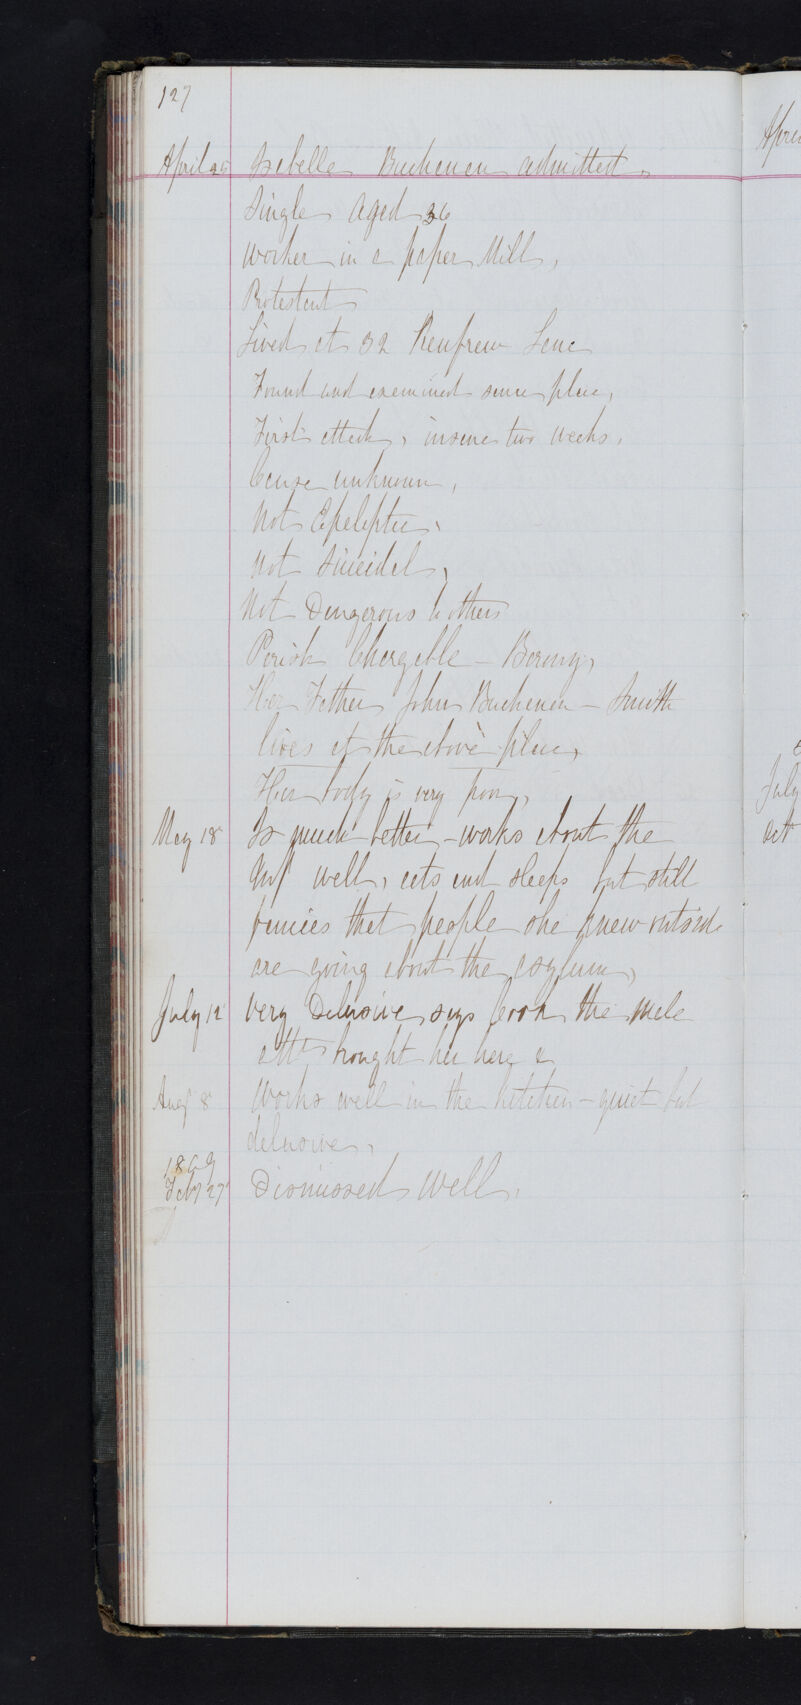 127
April 25 Isabella Buchanan admitted,
Single aged 36
Worker in a paper Mill,
Protestant
Lived at 32 Renfrew Lane
Found and examined same place,
First attack, insane two weeks,
Cause unknown,
Not Epeleptic,
Not Suicidal,
Not Dangerous to others
Parish Chargable - Barony,
Her Father John Buchanan - Smith
lives at the above place,
Her body is very poor,
May 18 Is much better - works about the
well, eats and sleeps but still
fancies that people she knew outside
are going about the asylum,
July 12 Very Delusive, says the male
attt brought her here
Aug 8 Works well in the kitchen - quiet but
delusive,
1869
Feby 27 Dismissed well,
Apri
July
Oct